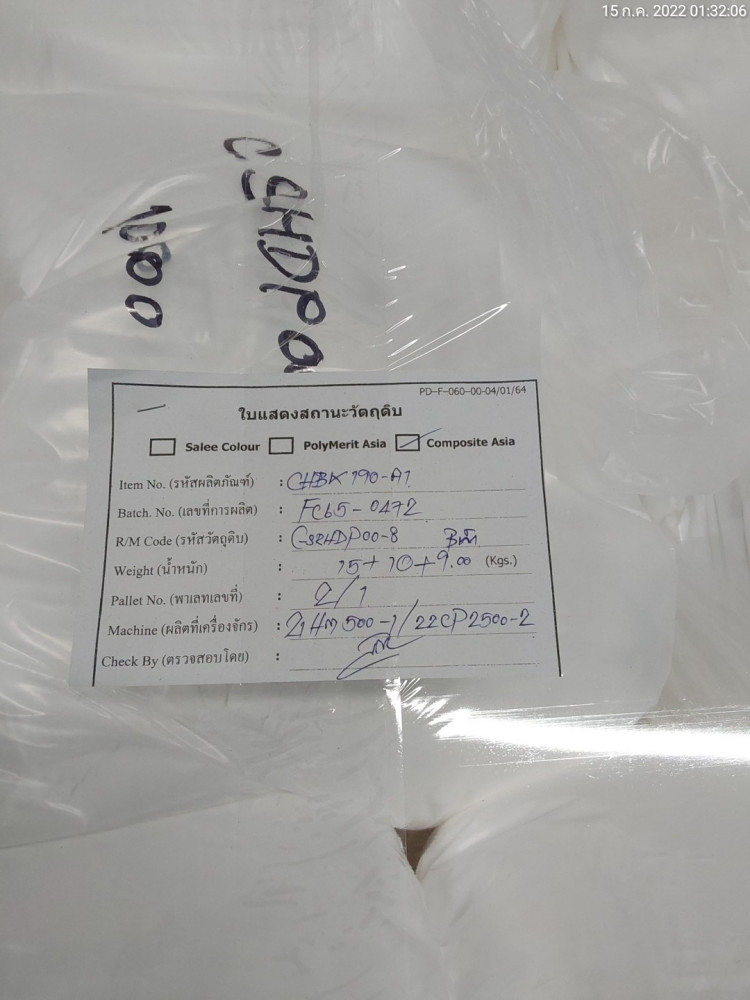 15 ก.ค. 2022 01:32:06
PD-F-060-00-04/01/64
ใบแสดงสถานะวัตถุดิบ
Salee Colour PolyMerit Asia Composite Asia
Item No. (รหัสผลิตภัณฑ์) : CHBK190-A1
Batch. No. (เลขที่การผลิต) : FC65-0472
R/M Code (รหัสวัตถุดิบ) :
Weight (น้ำหนัก) : 15+10+9.00 (Kgs.)
Pallet No. (พาเลทเลขที่) : 2/1
Machine (ผลิตที่เครื่องจักร) : 21HM500-1/22CP2500-2
Check By (ตรวจสอบโดย) :